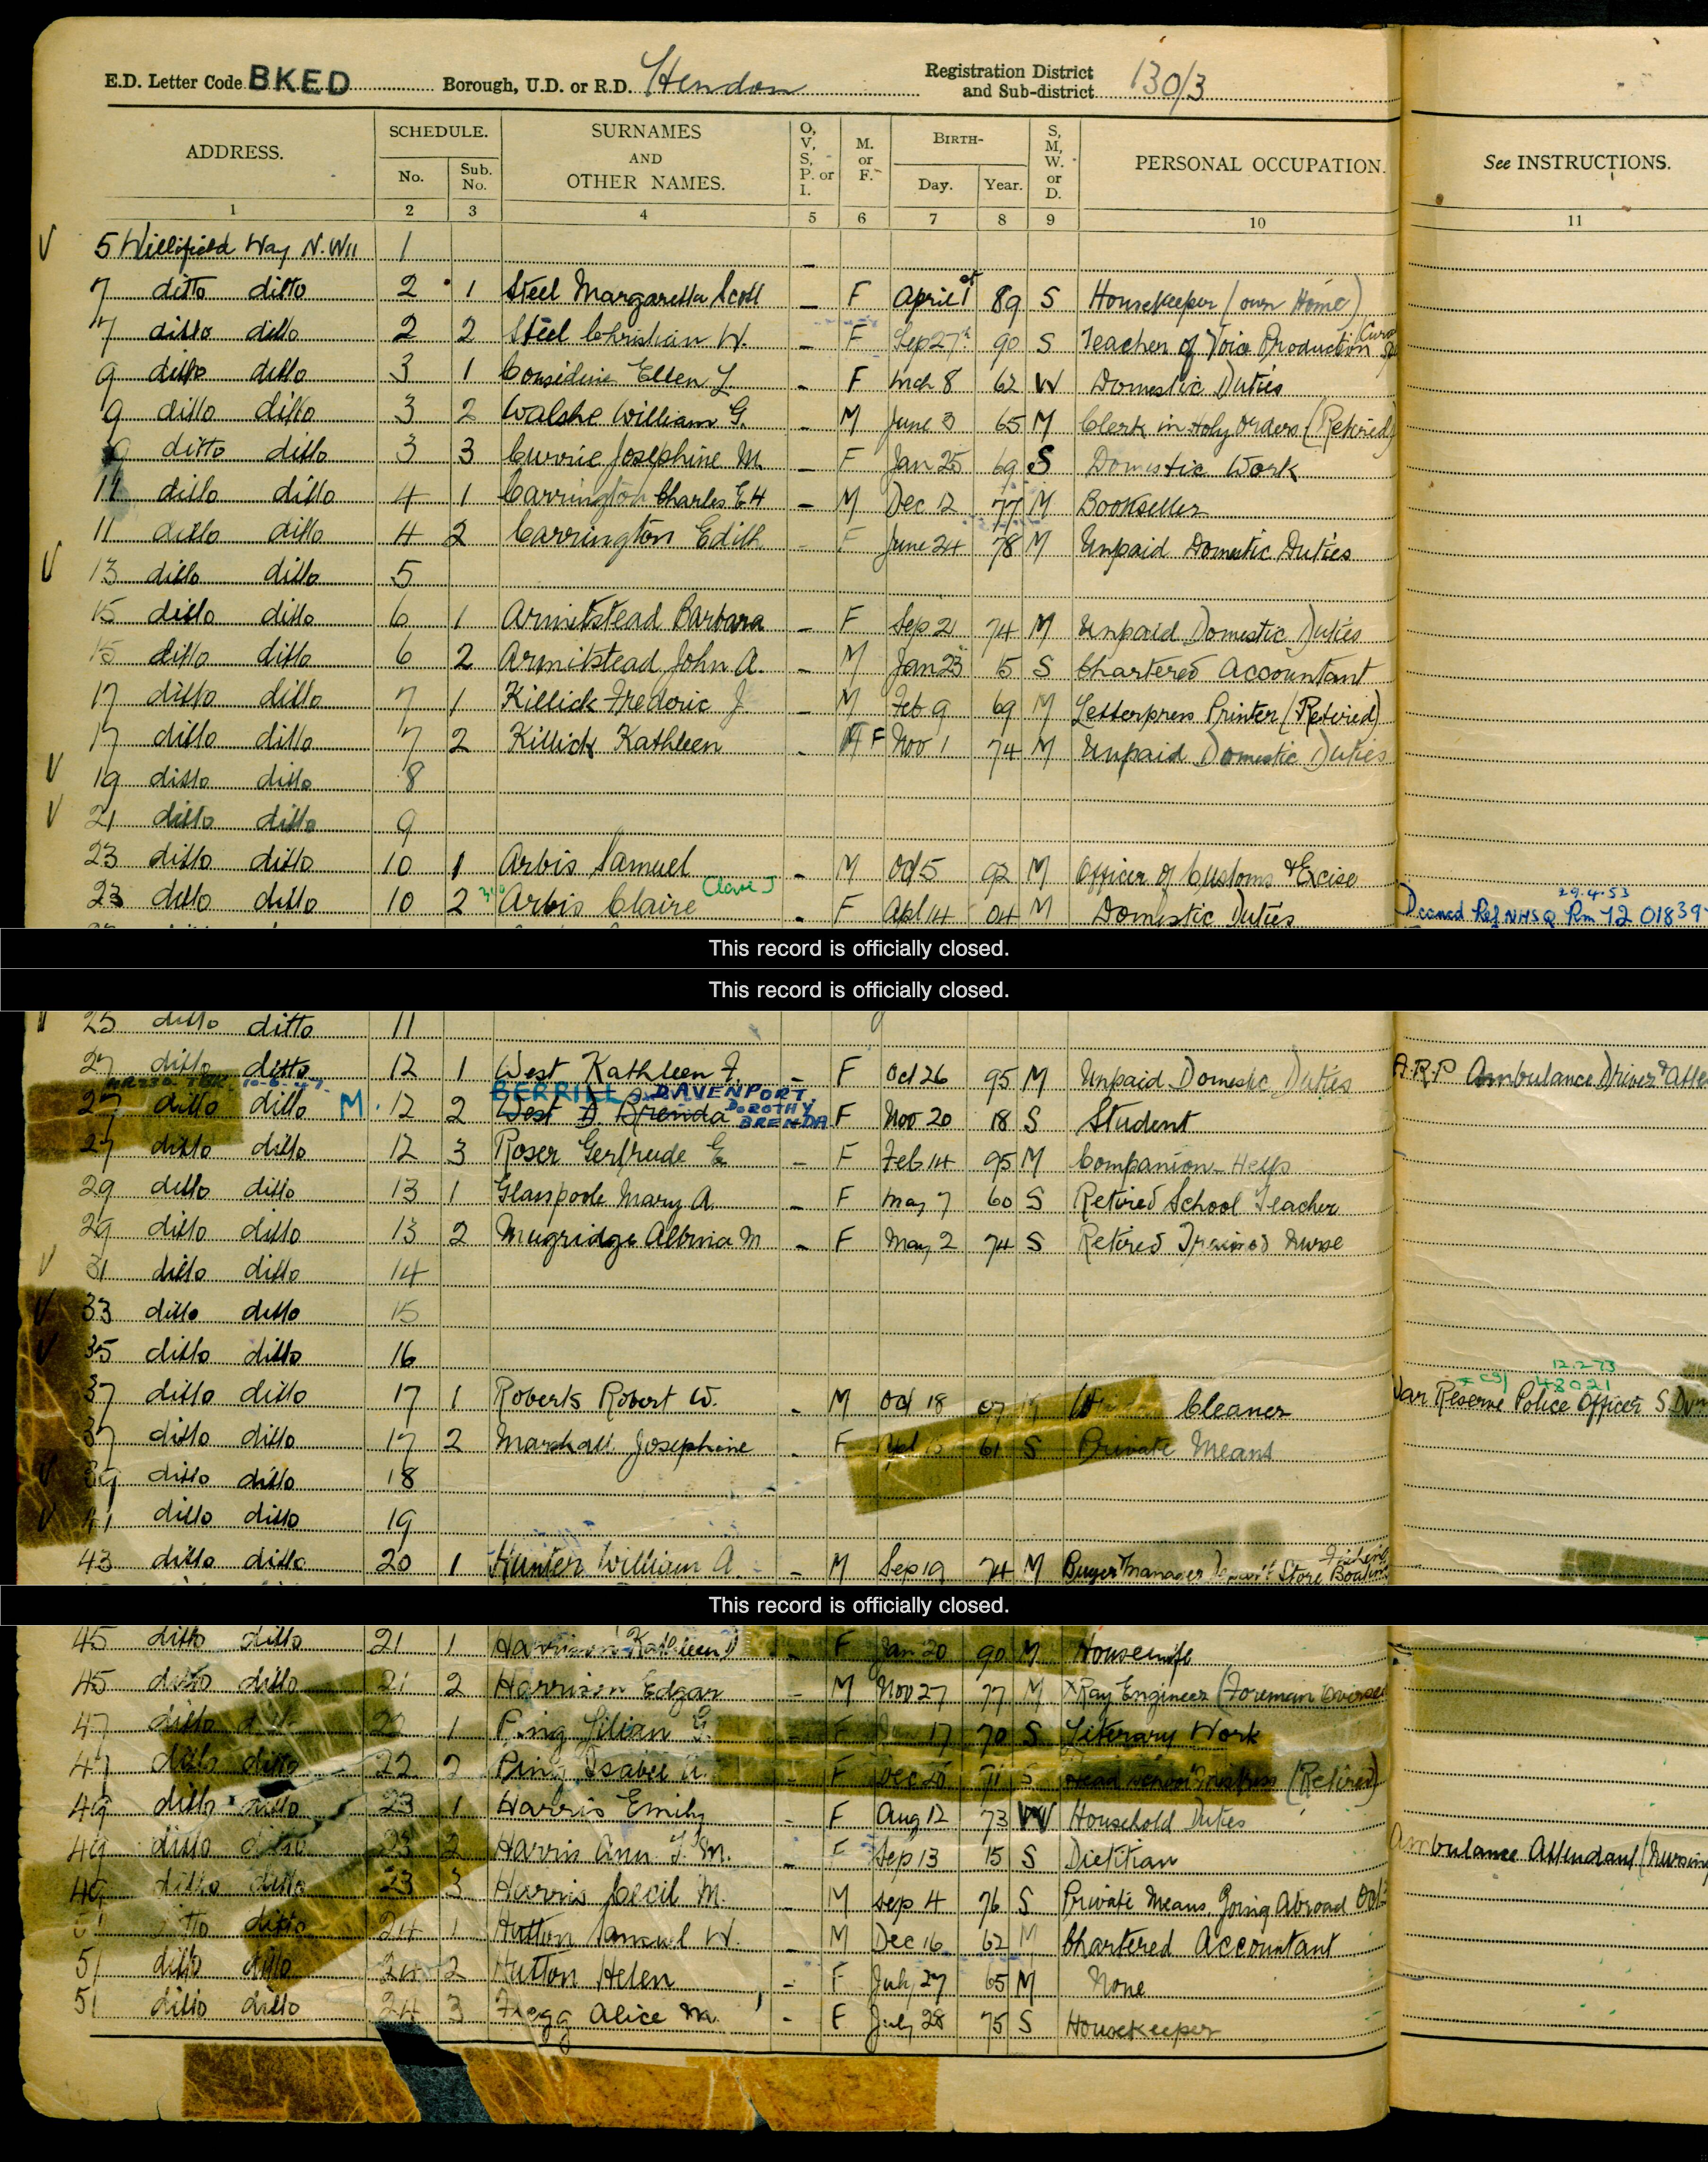 E.D. Letter Code BKED Borough, U.D. or R.D. Hendon Registration District and Sub-district 130/3
ADDRESS. SCHEDULE. No. Sub. No. SURNAMES AND OTHER NAMES. O, V, S, P. or I. M. or F. BIRTH- Day. Year. S, M, W. or D. PERSONAL OCCUPATION. See INSTRUCTIONS.
1 2 3 4 5 6 7 8 9 10 11
V 5 Willifield Way N.W11 1 –
7 ditto ditto 2 1 Steel Margaretta Scott – F April 1st 89 S Housekeeper (own Home)
7 ditto ditto 2 2 Steel Christian W. – F Sep 27th 90 S Teacher of Voice Production
9 ditto ditto 3 1 Considine Ellen L. – F Mch 8 62 W Domestic Duties
9 ditto ditto 3 2 Walshe William G. – M June 3 65 M Clerk in Holy Orders (Retired)
9 ditto ditto 3 3 Currie Josephine M. – F Jan 25 69 S Domestic Work
11 ditto ditto 4 1 Carrington Charles E H – M Dec 12 77 M Bookseller
11 ditto ditto 4 2 Carrington Edith – F June 24 78 M Unpaid Domestic Duties
V 13 ditto ditto 5
15 ditto ditto 6 1 Armitstead Barbara – F Sep 21 74 M Unpaid Domestic Duties
15 ditto ditto 6 2 Armitstead John A. – M Jan 23 15 S Chartered Accountant
17 ditto ditto 7 1 Killick Frederic J. – M Feb 9 69 M Letterpress Printer (Retired)
17 ditto ditto 7 2 Killick Kathleen – F Nov 1 74 M Unpaid Domestic Duties
V 19 ditto ditto 8
V 21 ditto ditto 9
23 ditto ditto 10 1 Arbis Samuel – M Oct 5 92 M Officer of Customs & Excise
23 ditto ditto 10 2 Arbis Claire Clare J – F Apl 14 04 M Domestic Duties 29.4.53 Ref NHSQ Rm 72 01839
This record is officially closed.
This record is officially closed.
V 25 ditto ditto 11
27 ditto ditto 12 1 West Kathleen F. – F Oct 26 95 M Unpaid Domestic Duties A.R.P Ambulance Driver &
27 ditto ditto M. 12 2 West D Brenda BERRILL DAVENPORT, DOROTHY BRENDA F Nov 20 18 S Student
27 ditto ditto 12 3 Roser Gertrude E – F Feb 14 95 M Companion-Help
29 ditto ditto 13 1 Glasspoole Mary A. – F May 7 60 S Retired School Teacher
29 ditto ditto 13 2 Mugridge Albina M – F May 2 74 S Retired Trained Nurse
V 31 ditto ditto 14
V 33 ditto ditto 15
V 35 ditto ditto 16
37 ditto ditto 17 1 Roberts Robert W. – M Oct 18 07 M Cleaner War Reserve Police Officer 12.2.73 48021
37 ditto ditto 17 2 Marshall Josephine – F 61 S Private Means
V 39 ditto ditto 18
V 41 ditto ditto 19
43 ditto ditto 20 1 Hunter William A – M Sep 19 74 M Buyer & Manager Store
This record is officially closed.
45 ditto ditto 21 1 Harrison Kathleen – F Jan 20 90 M Housewife
45 ditto ditto 21 2 Harrison Edgar – M Nov 27 77 M XRay Engineer (Foreman
47 ditto ditto 22 1 Ping Lilian G. – F 17 70 S Literary Work
47 ditto ditto 22 2 Ping Isabel – F Dec 20 71 S Head School Mistress (Retired)
49 ditto ditto 23 1 Harris Emily – F Aug 12 73 W Household Duties
49 ditto ditto 23 2 Harris Ann – F Sep 13 15 S Dietitian Ambulance Attendant
49 ditto ditto 23 3 Harris Cecil M. – M Sep 4 76 S Private Means, Going Abroad
51 ditto ditto 24 1 Hutton Samuel W. – M Dec 16 62 M Chartered Accountant
51 ditto ditto 24 2 Hutton Helen – F July 27 65 M None
51 ditto ditto 24 3 Alice M. – F July 28 75 S Housekeeper